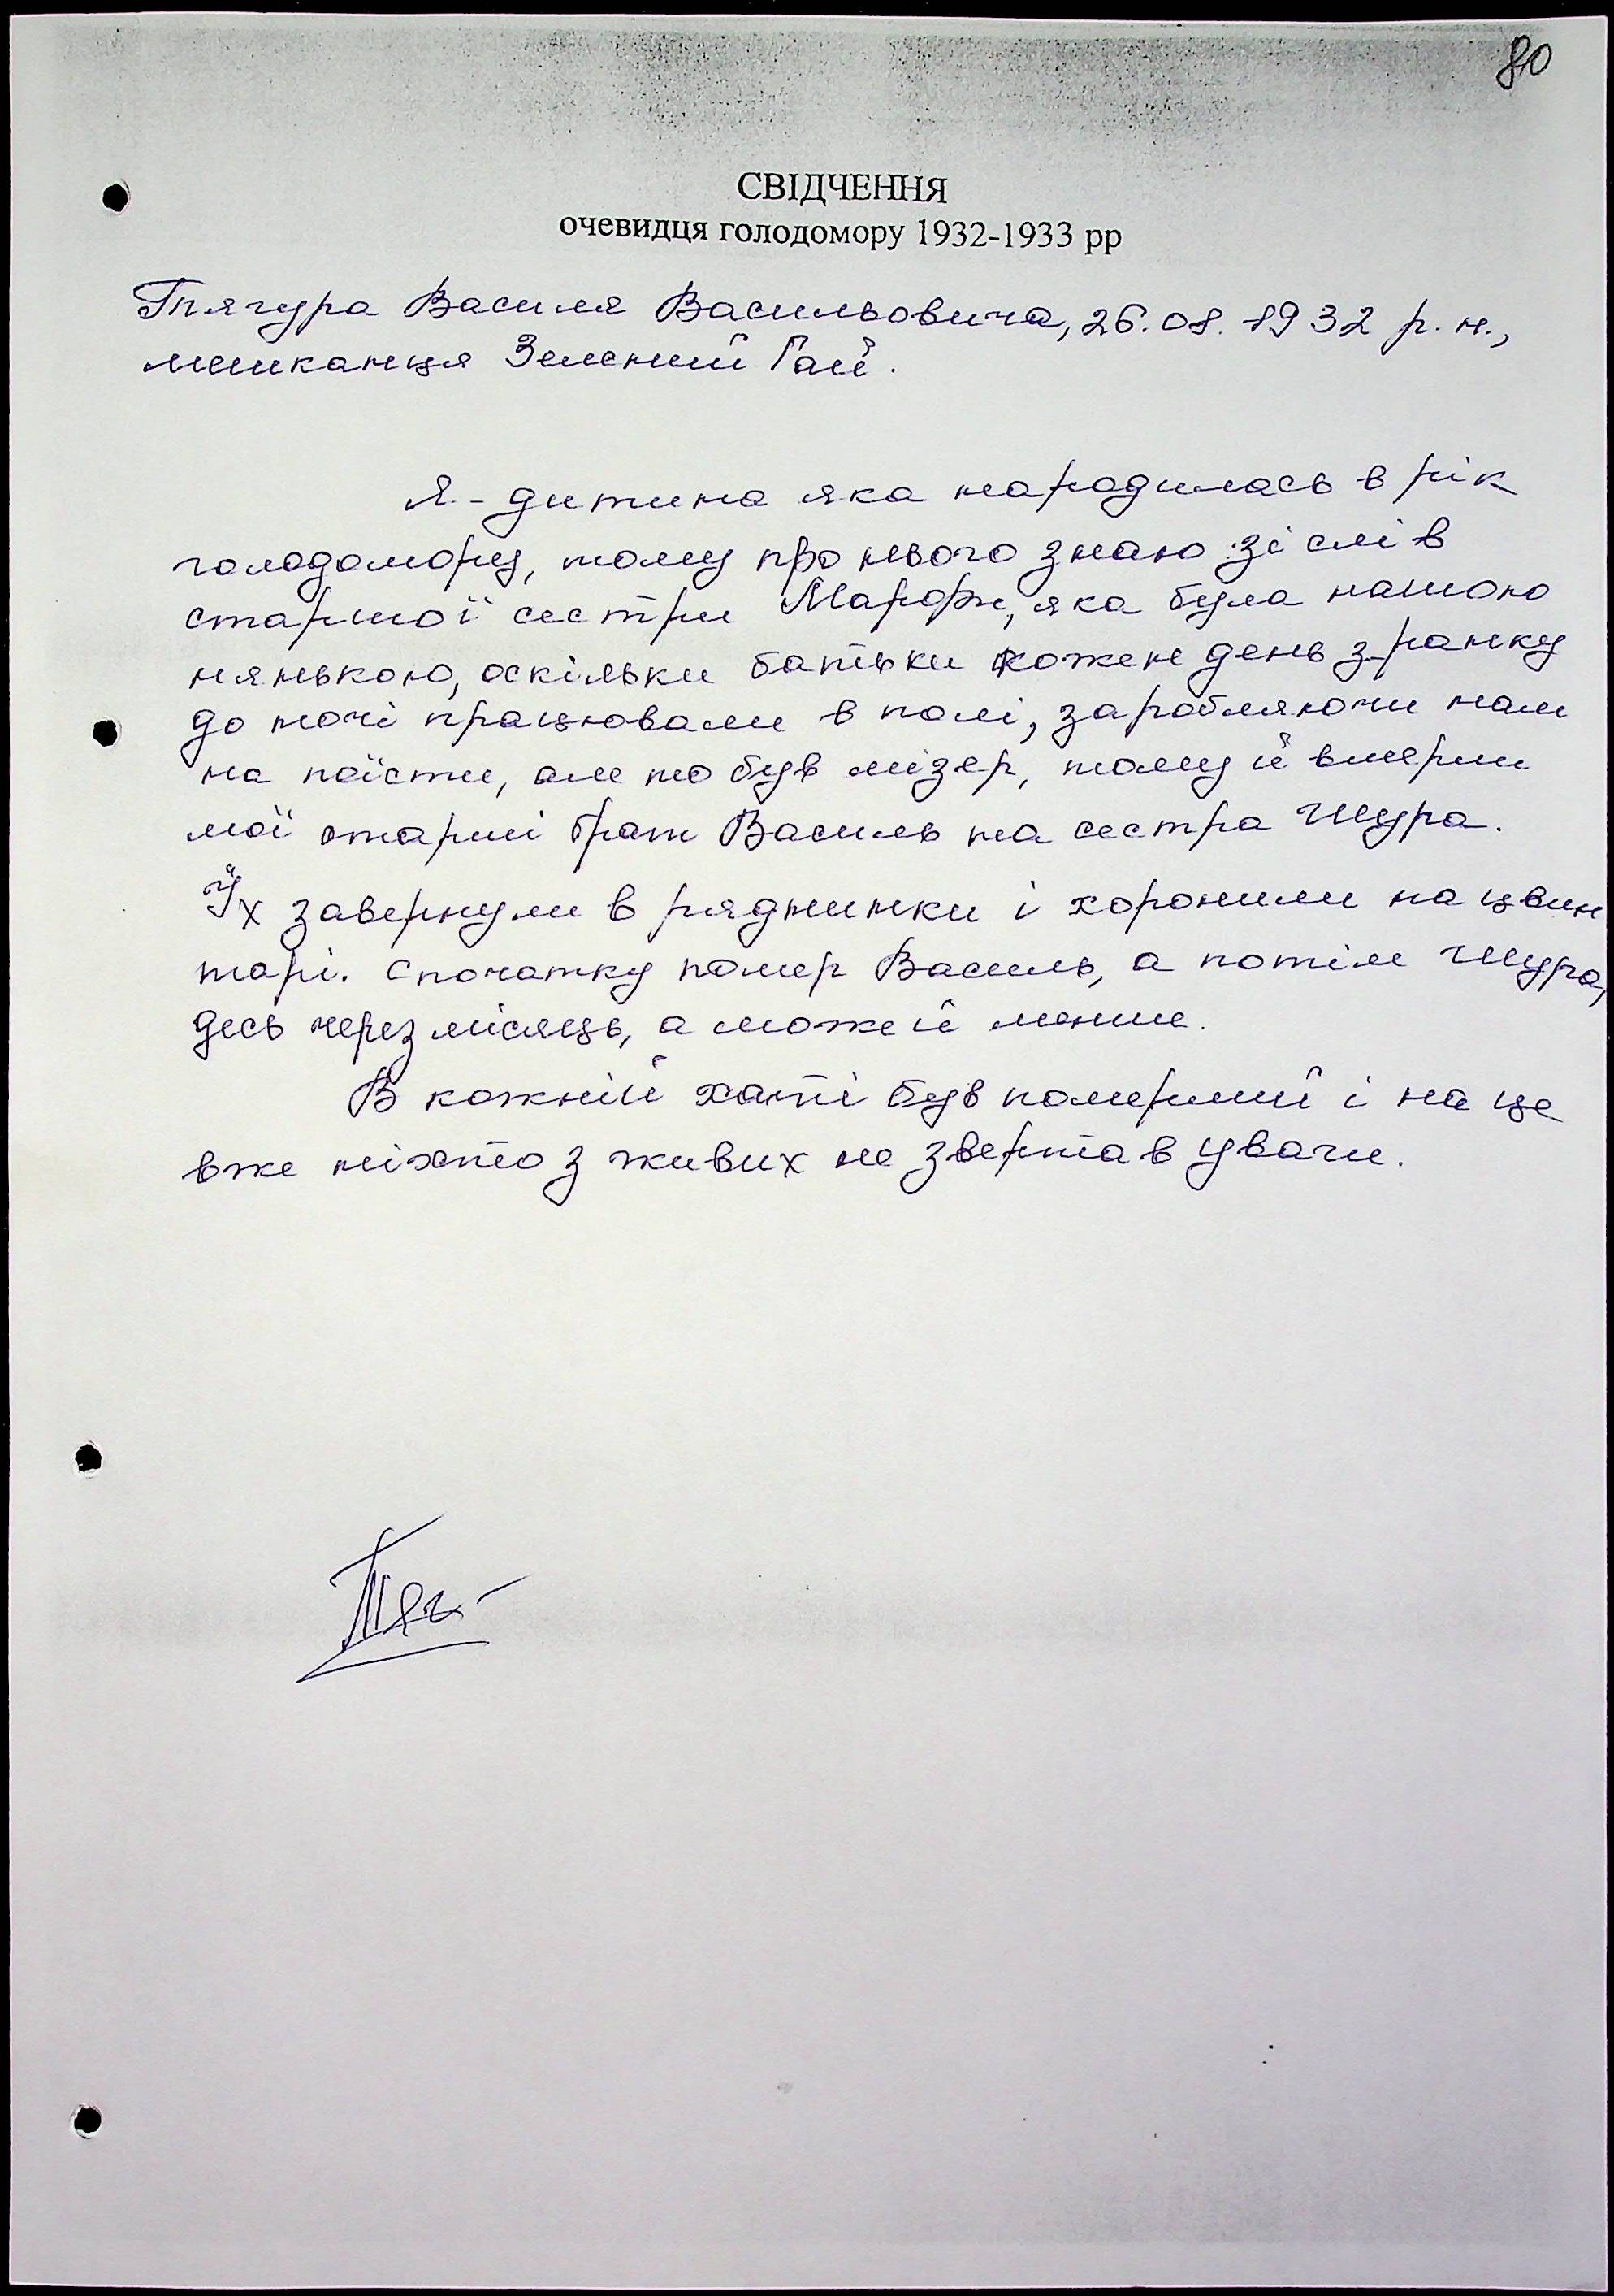 80
СВІДЧЕННЯ
очевидця голодомору 1932-1933 рр
Тягура Василя Васильовича, 26.08.1932 р.н.,
мешканця Зелений Гай.
Я - дитина яка народилась в рік
голодомору, тому про нього знаю зі слів
старшої сестри Марфи, яка була нашою
нянькою, оскільки батьки кожен день з ранку
до ночі працювали в полі, заробляючи нам
на поїсти, але то був мізер, тому й вмерли
мої старші брат Василь та сестра Шура.
Їх завернули в ряднинки і хоронили на цвин
тарі. Спочатку помер Василь, а потім Шура,
десь через місяць, а може й менше.
В кожній хаті був померший і на це
вже ніхто з живих не звертав уваги.
Тяг-